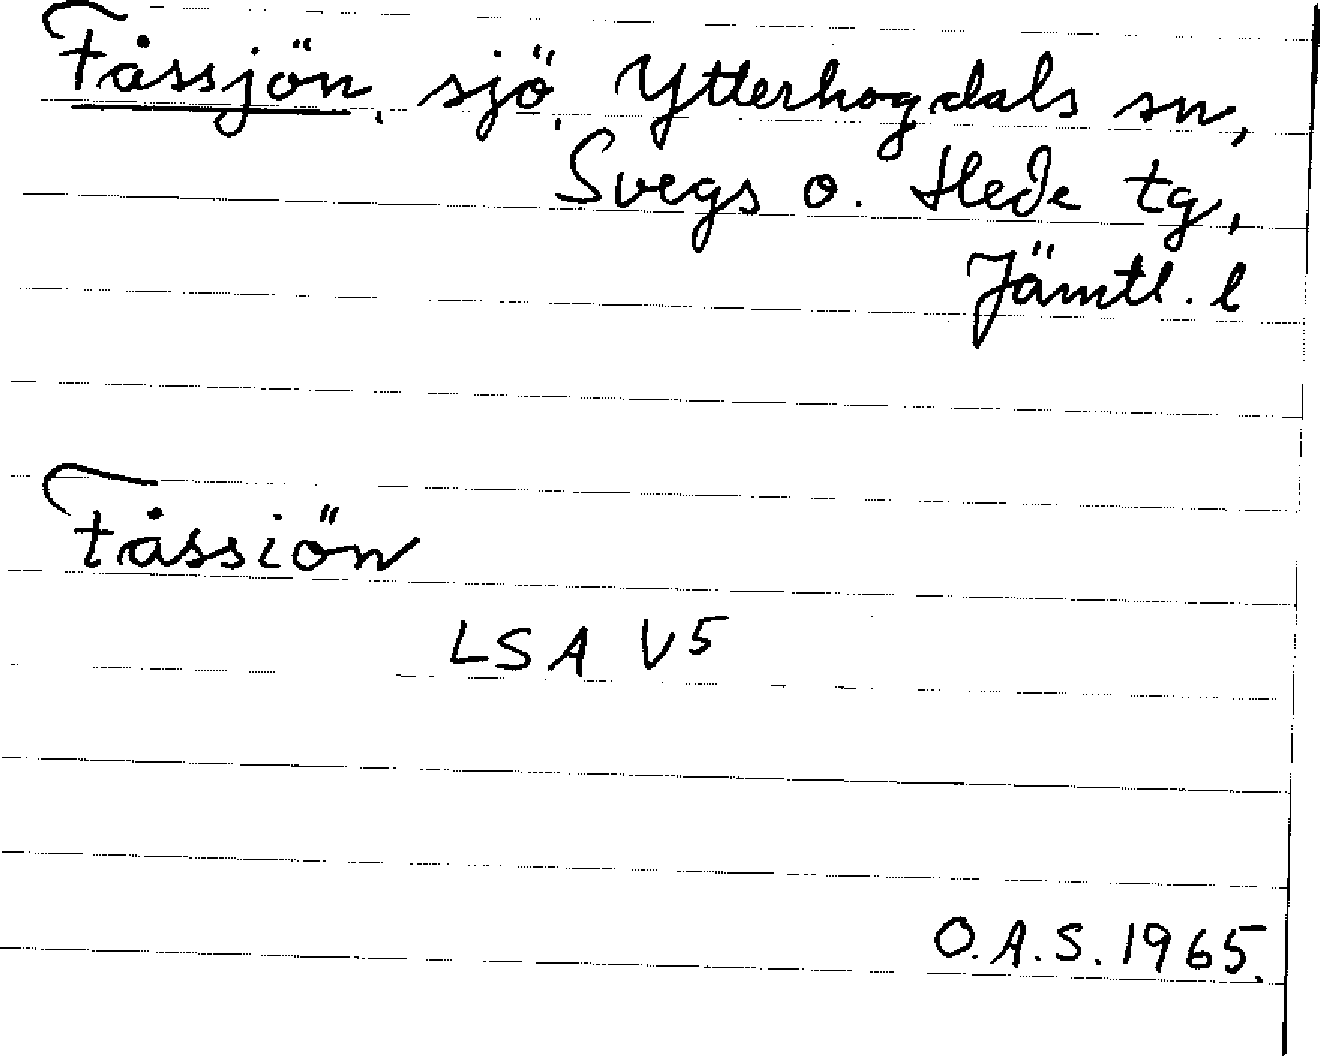 Fåssjön, sjö, Ytterhogdals sn,
Svegs o. Hede tg,
Jämtl. l
Fåssiön
LSA V5
O.A.S. 1965.